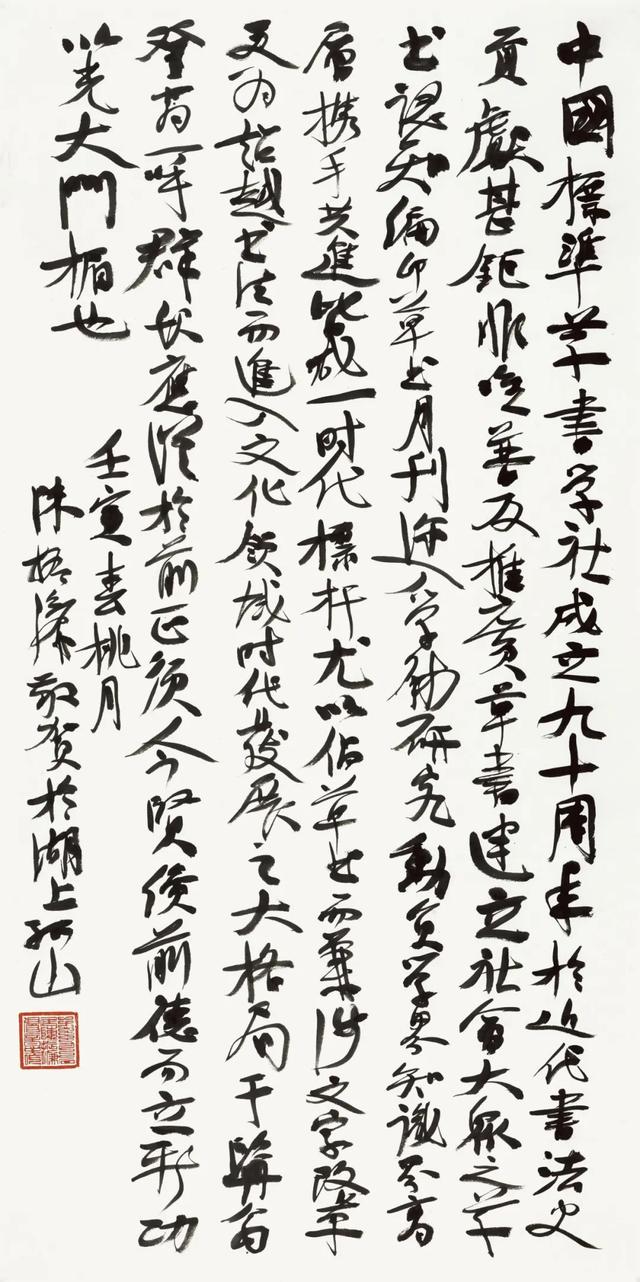 中國標準草書学社成立九十周年於近代書法史
貢獻甚鉅非唯普及推廣草書建立社會大眾之草
书認知編印草书月刊進入学術研究動員学界知識分高
層携手共進皆成一时代標杆尤以佔草书而兼涉文字改革
更为超越书法而進入文化領域时代發展之大格局于髯翁
登高一呼群伙應從於前正須人今賢續前德而立新功
以光大門楣也
壬寅春桃月
陳振濂敬贺於湖上孤山